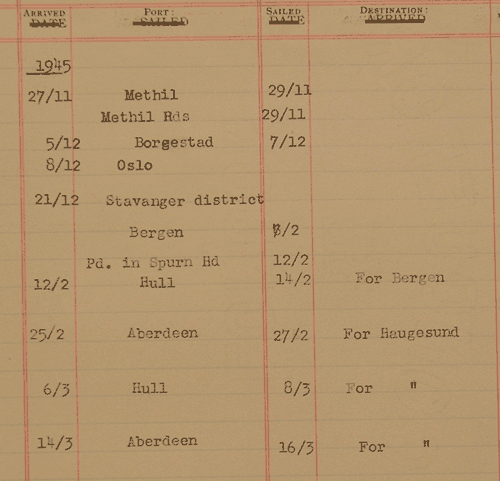 ARRIVED PORT: SAILED DESTINATION:
DATE SAILED DATE ARRIVED
1945
27/11 Methil 29/11
Methil Rds 29/11
5/12 Borgestad 7/12
8/12 Oslo
21/12 Stavanger district
Bergen /2
Pd. in Spurn Hd 12/2
12/2 Hull 14/2 For Bergen
25/2 Aberdeen 27/2 For Haugesund
6/3 Hull 8/3 For "
14/3 Aberdeen 16/3 For "